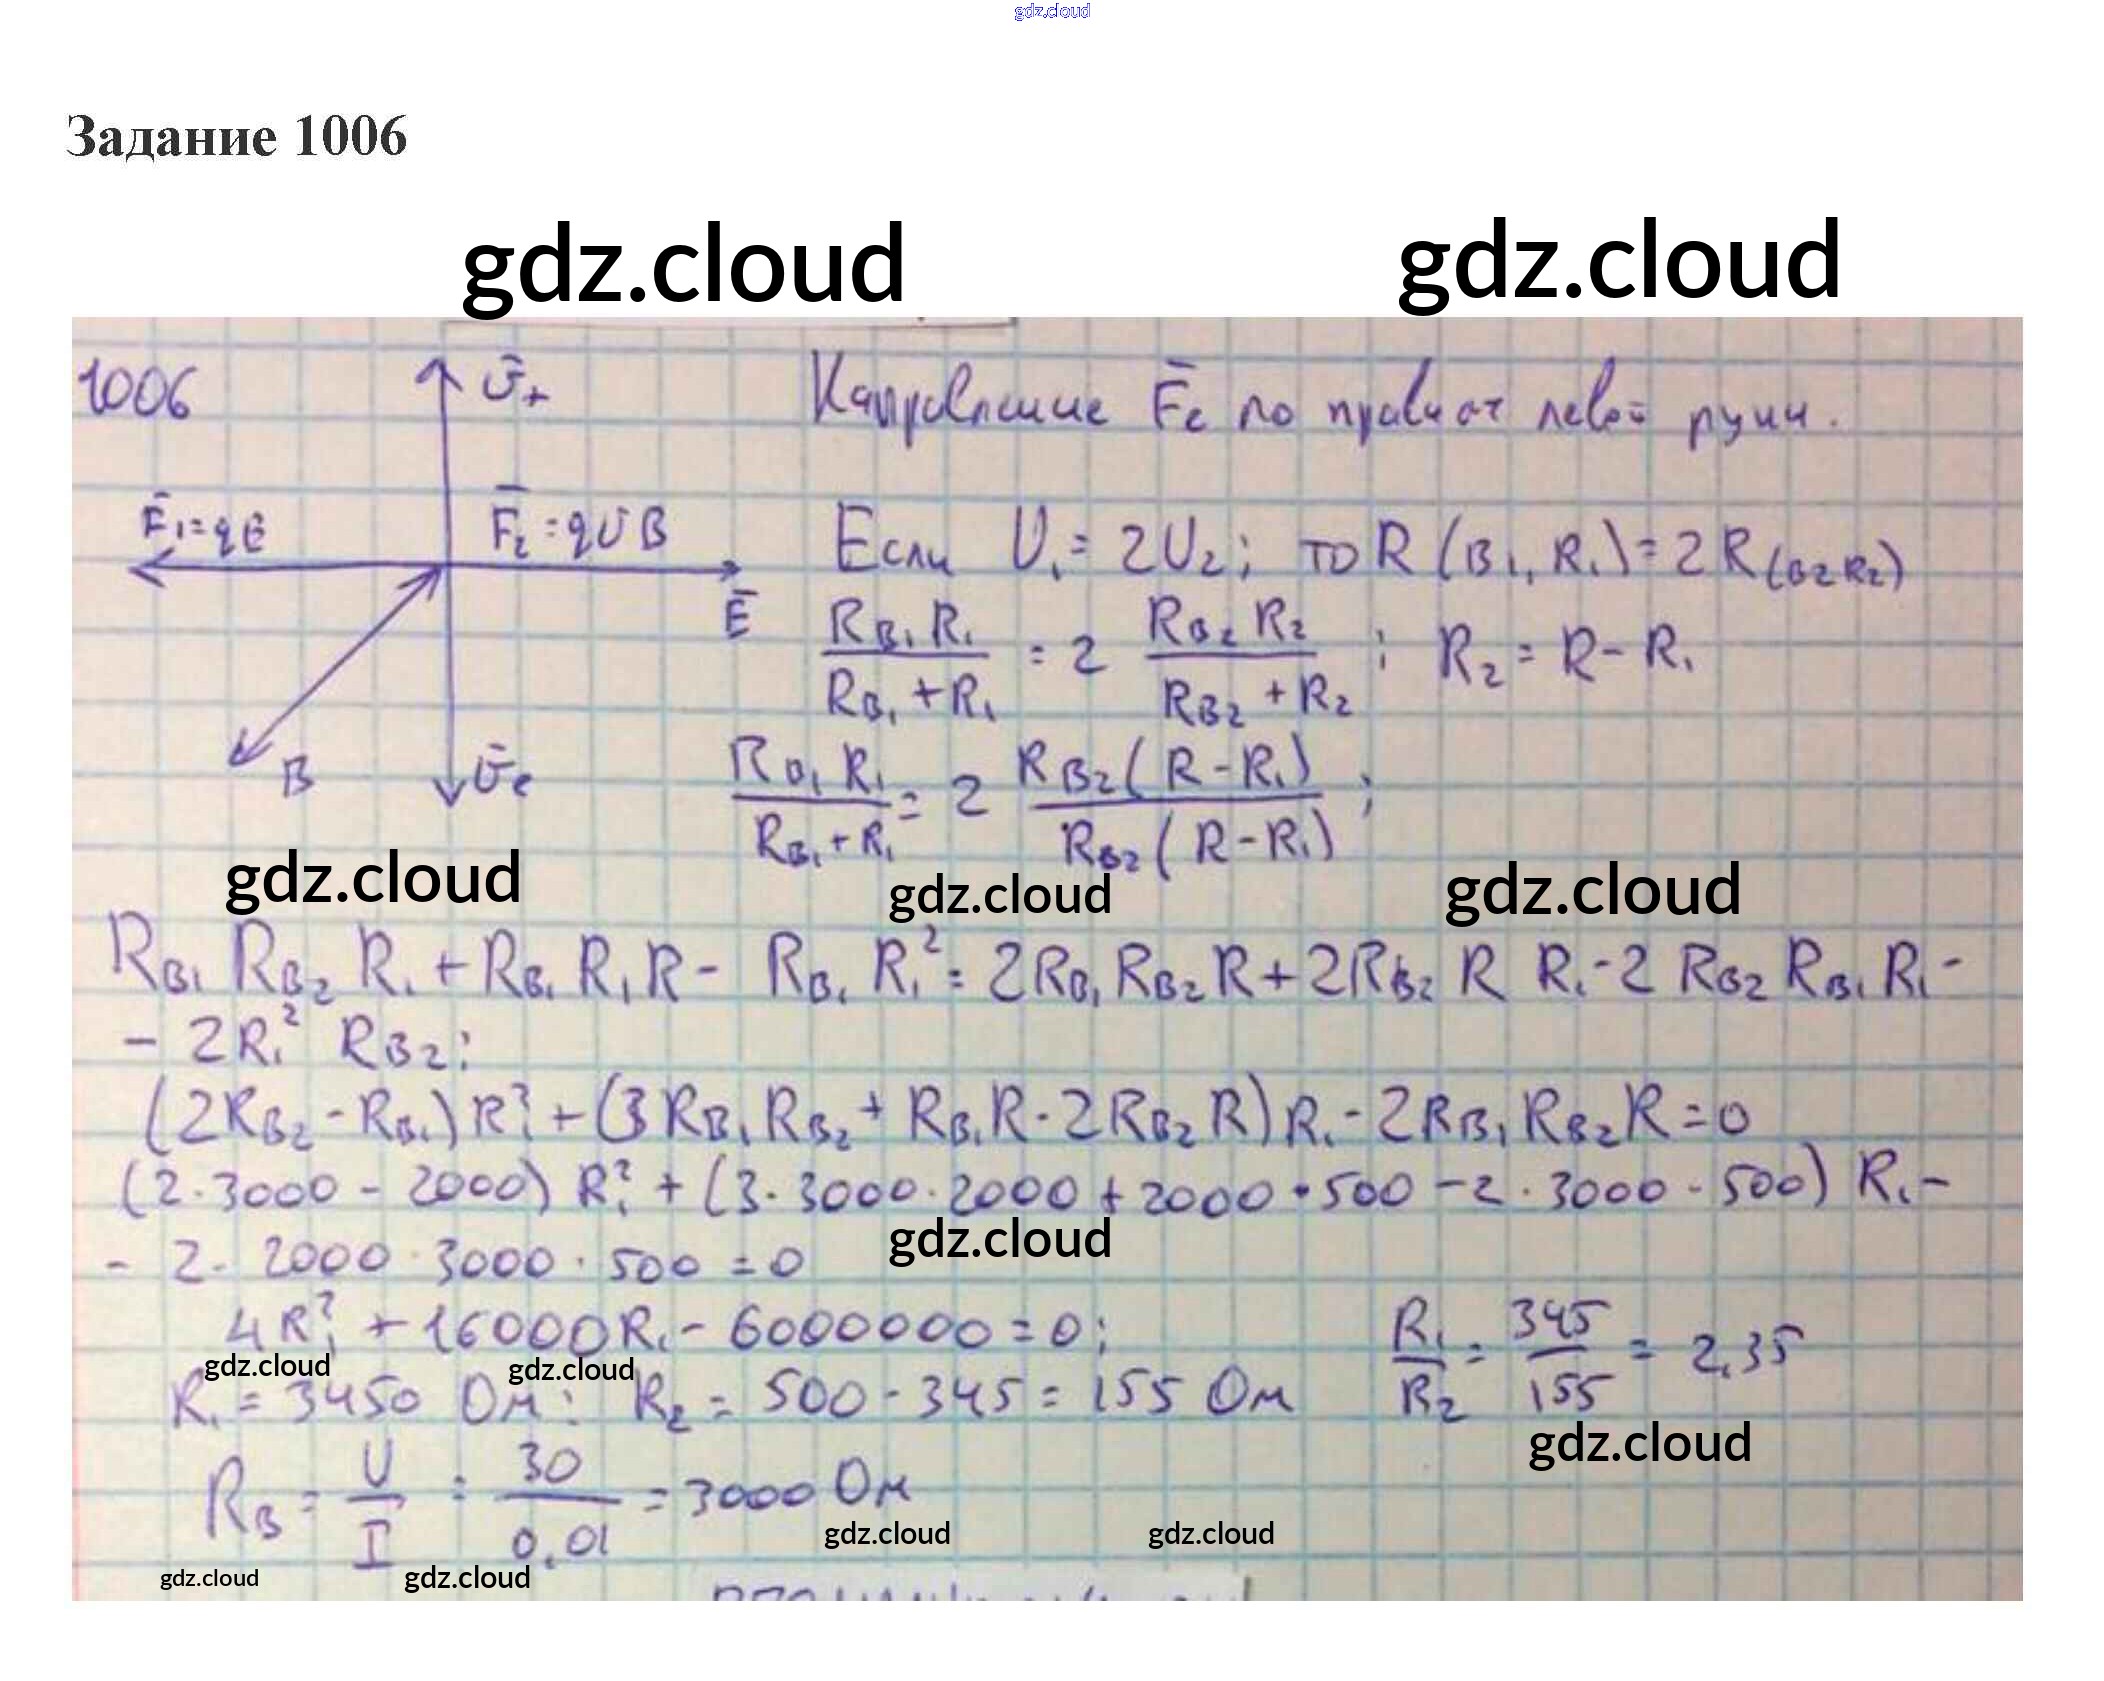 gdz.cloud
Задание 1006
gdz.cloud gdz.cloud
1006
v̄₊
Направление F̄e по правилам левой руки.
F̄₁=qE
F̄₂=qUB
Ē
B
v̄e
Если U₁=2U₂; то R(B₁,R₁)=2R(B₂R₂)
RB₁R₁/(RB₁+R₁) = 2 RB₂R₂/(RB₂+R₂) ; R₂=R-R₁
RB₁R₁/(RB₁+R₁) = 2 RB₂(R-R₁)/RB₂(R-R₁) ;
gdz.cloud gdz.cloud gdz.cloud
RB₁RB₂R₁+RB₁R₁R- RB₁R₁²=2RB₁RB₂R+2RB₂RR₁-2RB₂RB₁R₁-
- 2R₁²RB₂;
(2RB₂-RB₁)R₁²+(3RB₁RB₂+RB₁R-2RB₂R)R₁-2RB₁RB₂R=0
(2·3000-2000)R₁²+(3·3000·2000+2000·500-2·3000·500)R₁-
- 2·2000·3000·500=0
gdz.cloud
4R₁²+16000R₁-6000000=0;
R₁/R₂ = 345/155 = 2,35
gdz.cloud gdz.cloud
R₁=3450 Ом; R₂=500-345=155 Ом
gdz.cloud
RB = U/I = 30/0,01 = 3000 Ом
gdz.cloud gdz.cloud
gdz.cloud gdz.cloud